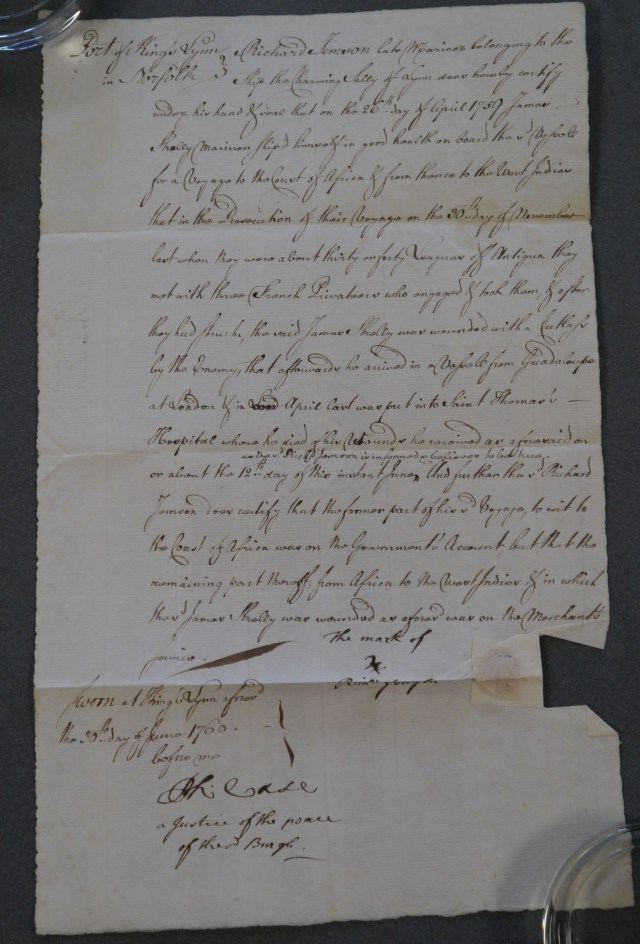 Port of King's Lynn Richard Jemson late Mariner belonging to the
in Norfolk } Ship the Charming Sally of Lynn does hereby certify
under his hand & seal that on the 26th day of April 1759 James
Skelly Mariner ship'd himself in good health on board the sd Vessell
for a Voyage to the Coast of Africa & from thence to the West Indies
that in the Prosecution of their Voyage on the 30th day of November
last when they were about thirty or forty Leagues of Antigua they
met with three French Privateers who engaged & took them, & after
they had struck, the said James Skelly was wounded with a Cutlass
by the Enemy, that afterwards he arrived in a Vessell from Guadaloupe
at London & in April last was put into Saint Thomas's
Hospital where he died of his Wounds he received as aforesaid on
as he sd Richd Jemson is informed & believes to be true
or about the 12th day of this instant June, And further the sd Richard
Jemson does certify that the former part of his sd Voyage, to wit to
the Coast of Africa was on the Government's Account, but that the
remaining part thereof, from Africa to the West Indies & in which
the sd James Skelly was wounded as aforesd was on the Merchants
service.
The mark of
X
Sworn at King's Lynn aforesd
the 30th day of June 1760
before me
Ph: Case
a Justice of the peace
of the sd Burgh.